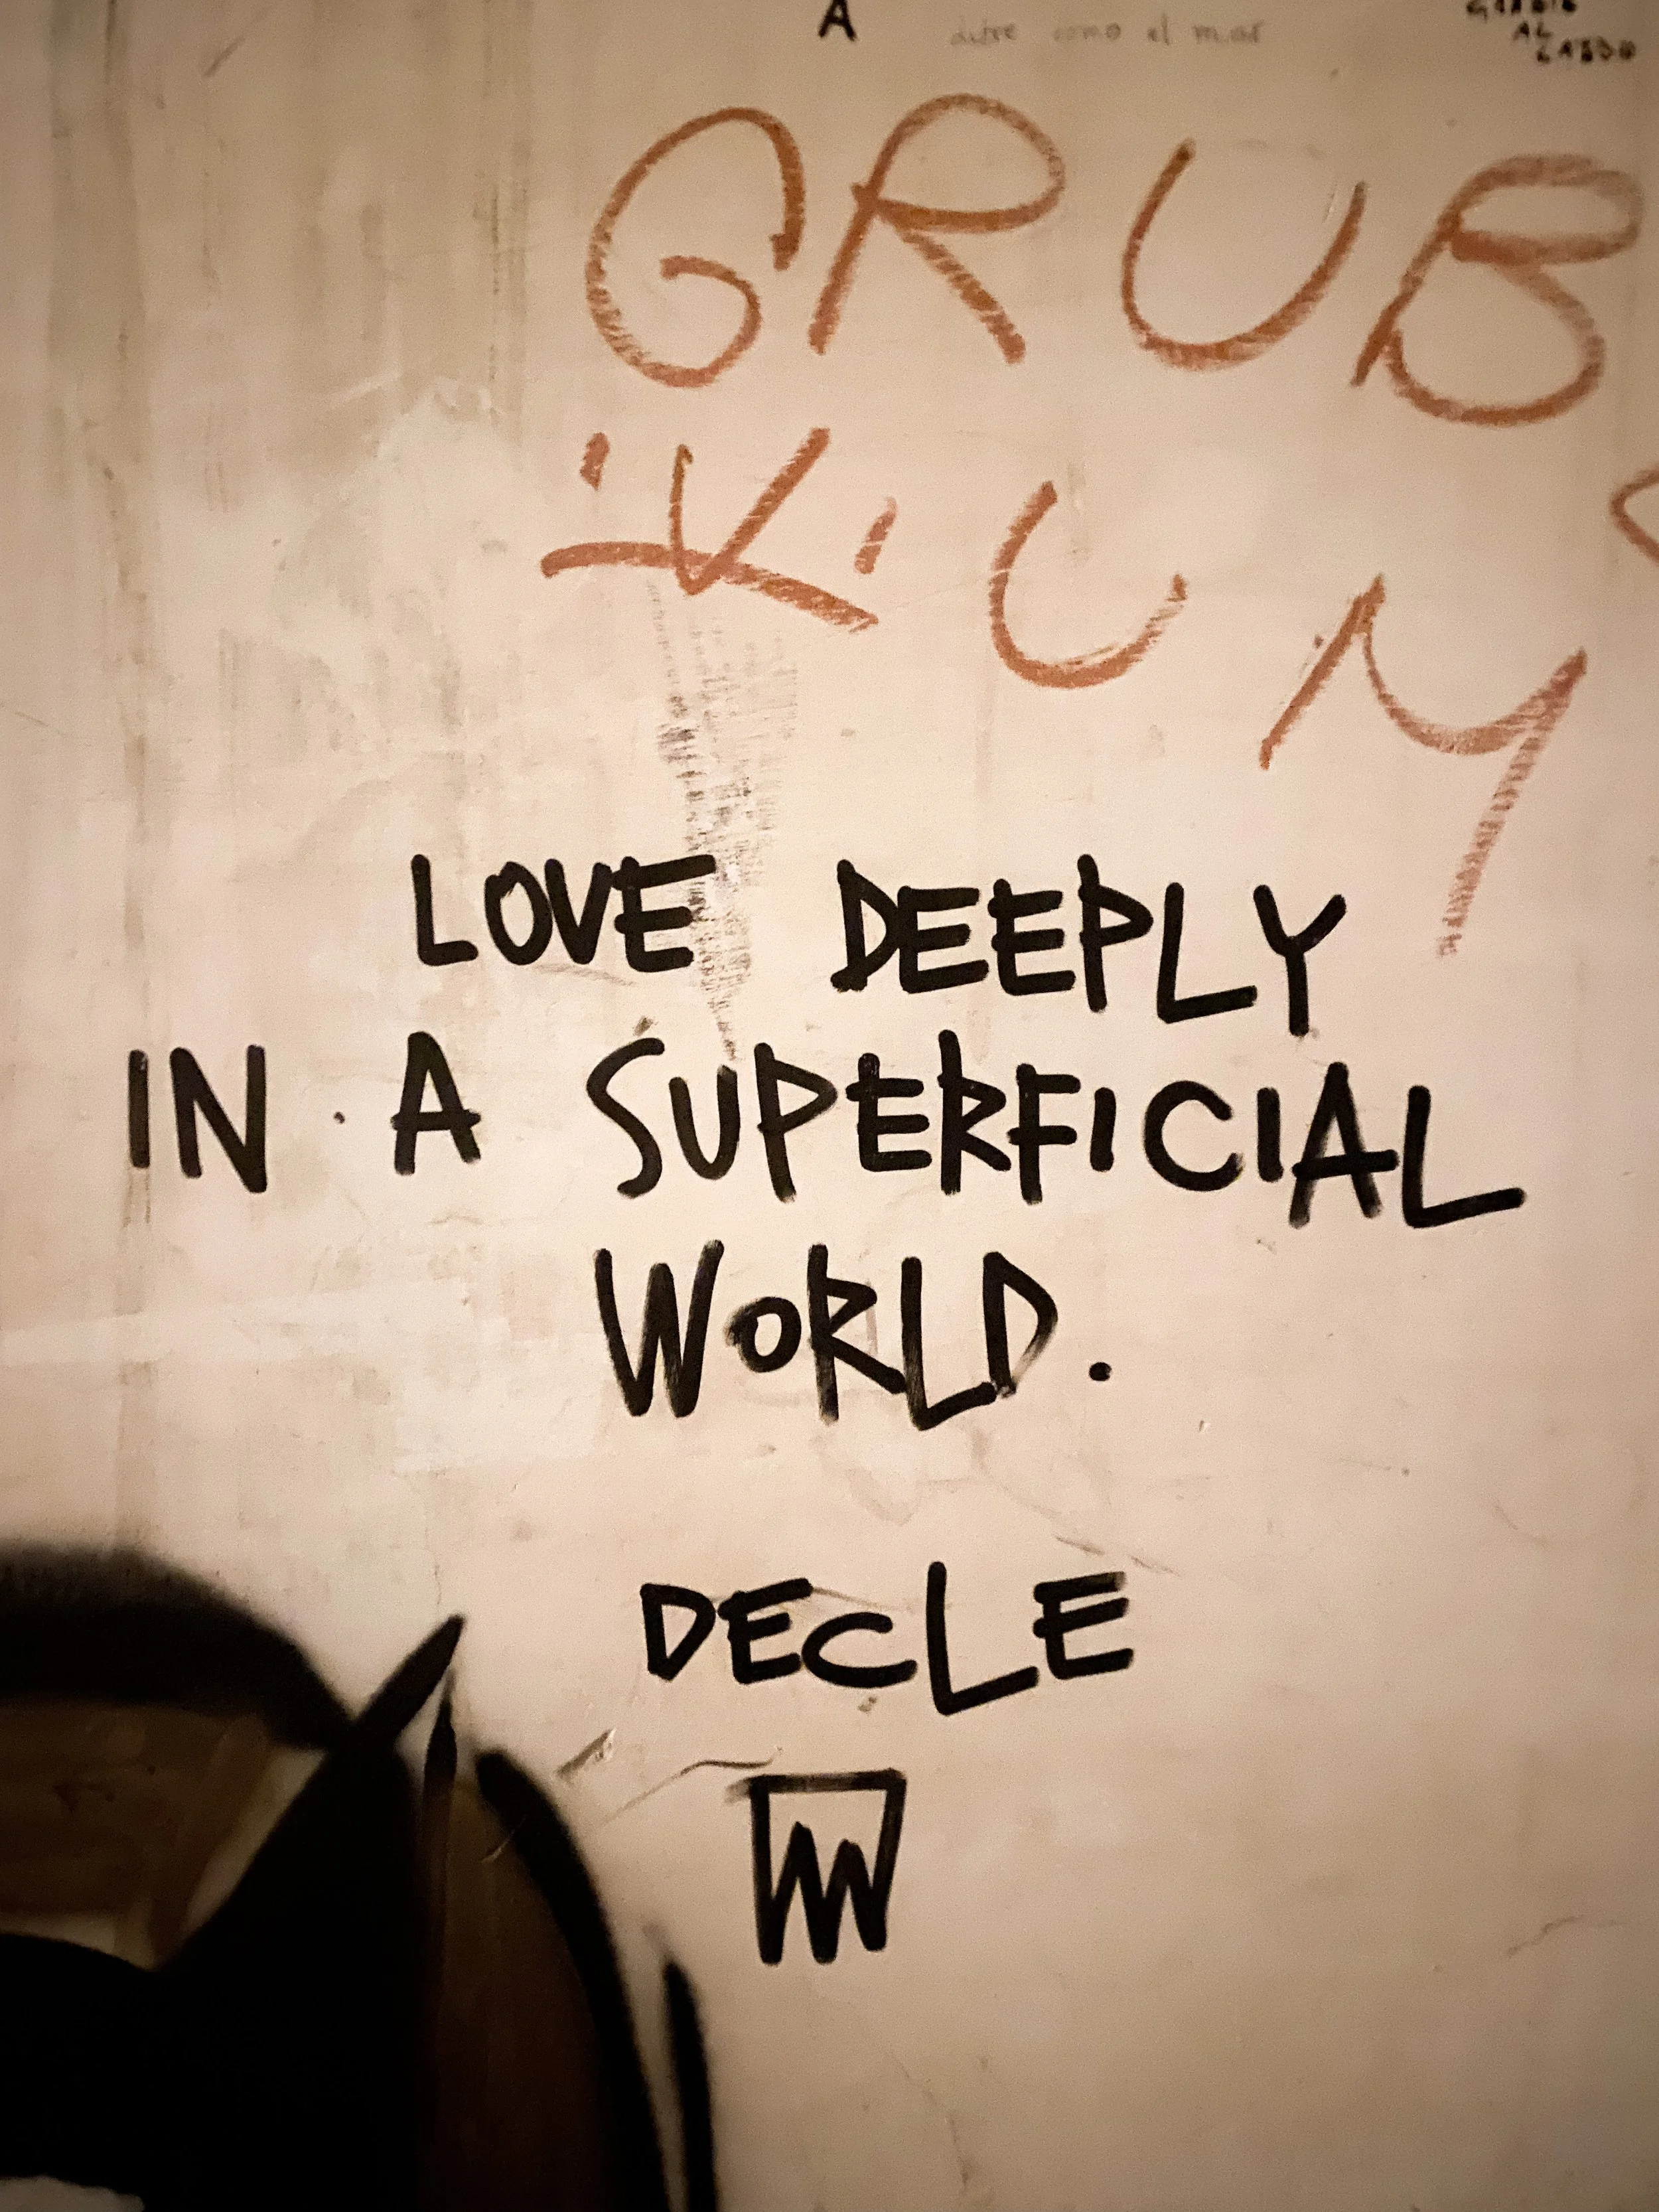 A
como el mar
AL
GRUB
KUM
LOVE DEEPLY
IN A SUPERFICIAL
WORLD.
DECLE